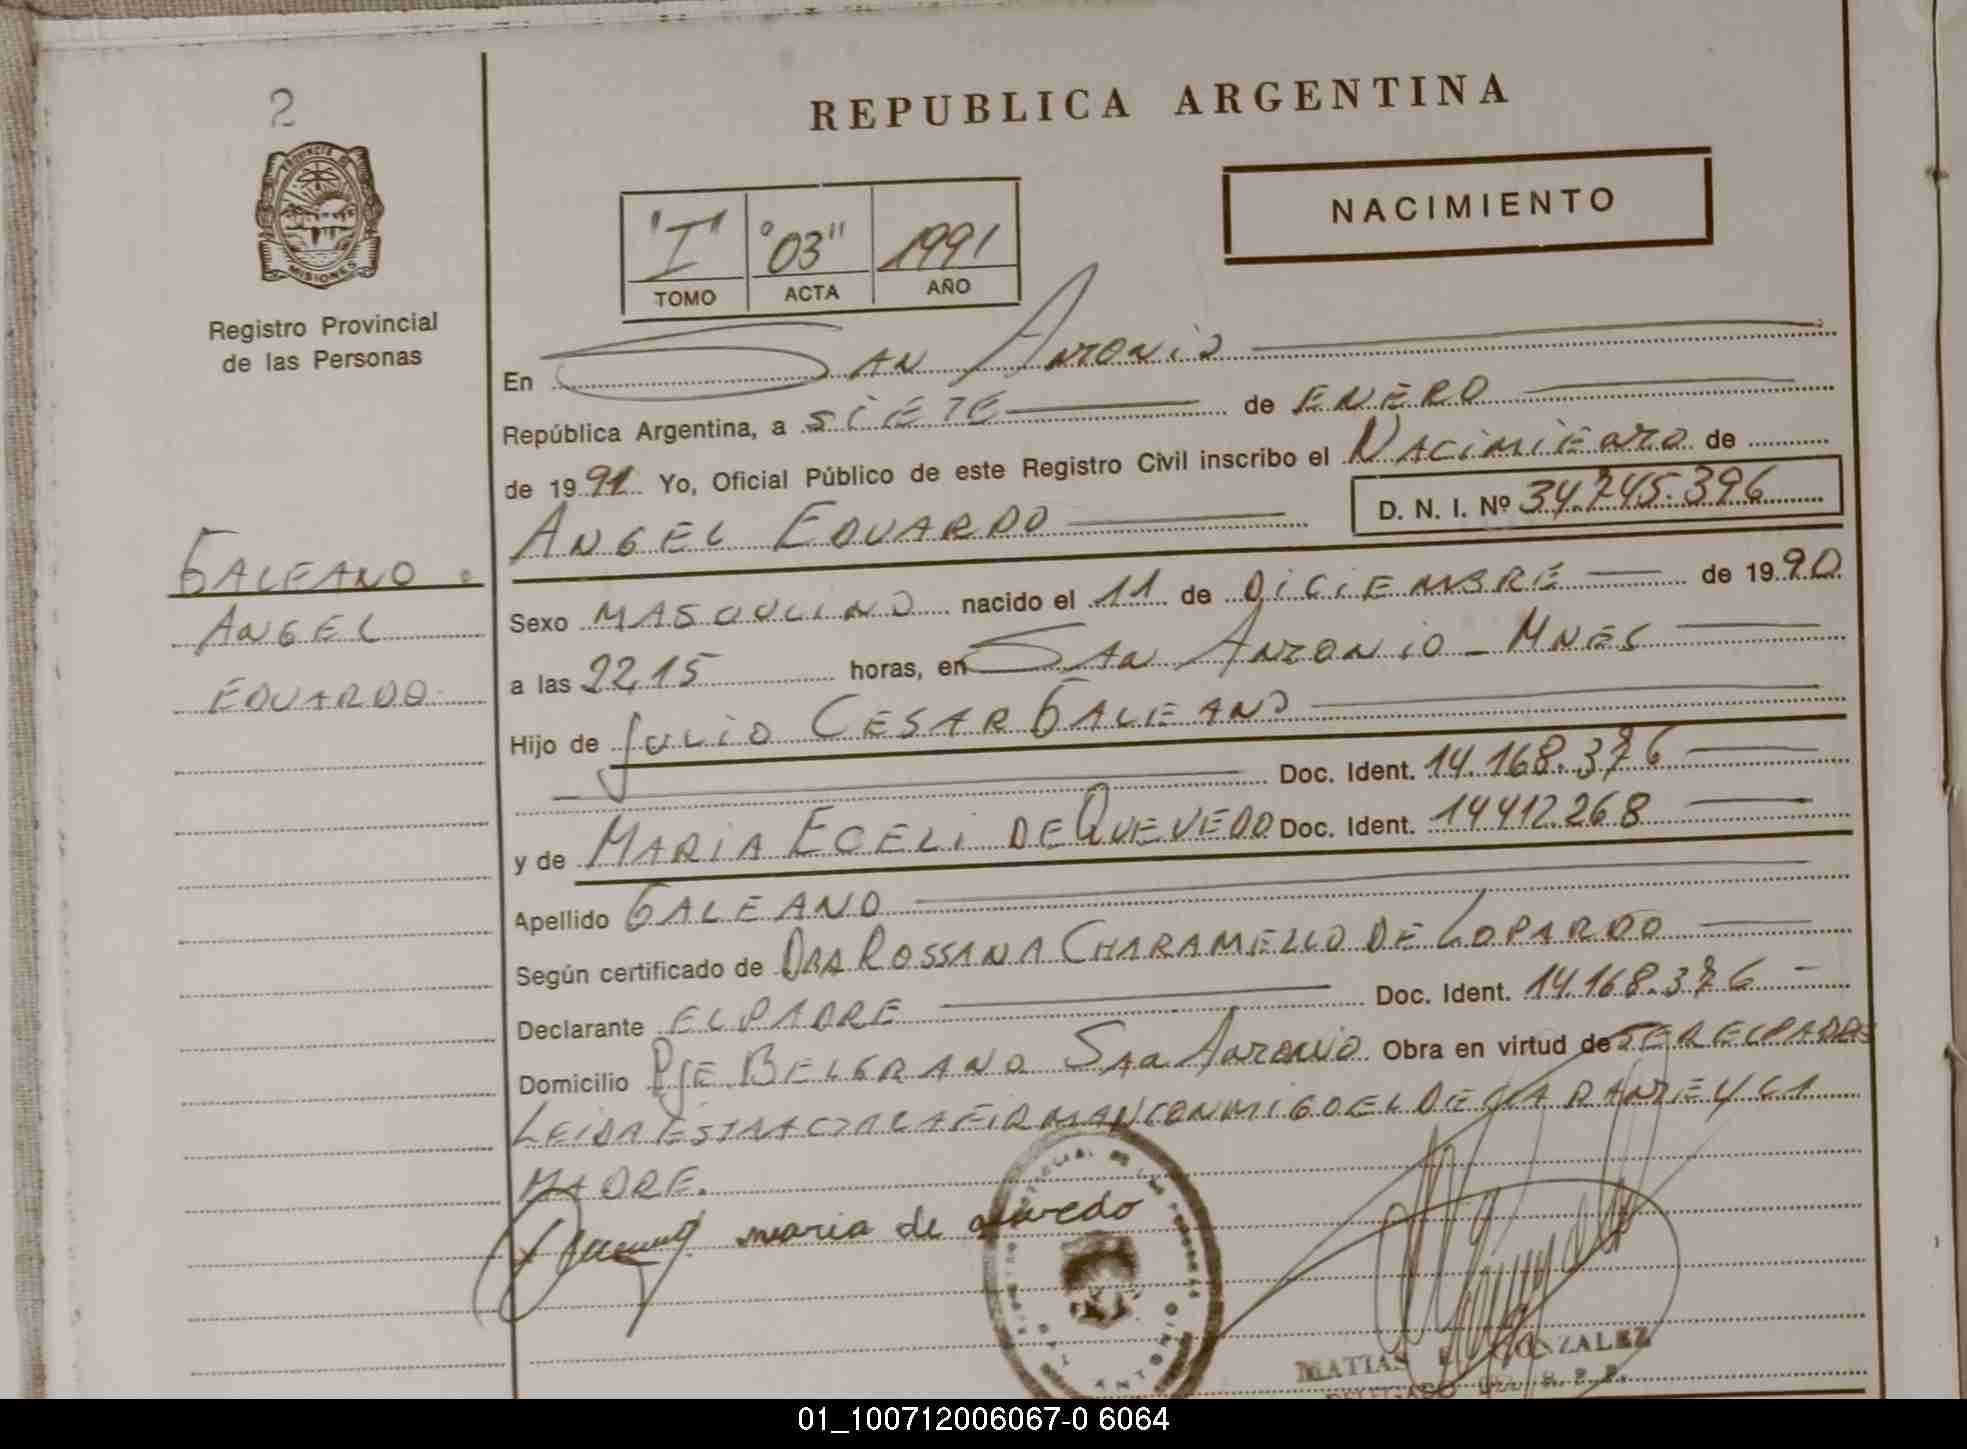 2
PROVINCIA DE
MISIONES
Registro Provincial
de las Personas
GALEANO
ANGEL
EDUARDO
REPUBLICA ARGENTINA
NACIMIENTO
"I" "03" 1991
TOMO ACTA AÑO
En SAN ANTONIO
República Argentina, a SIETE de ENERO
de 1991 Yo, Oficial Público de este Registro Civil inscribo el NACIMIENTO de
ANGEL EDUARDO D. N. I. Nº 34.745.396
Sexo MASCULINO nacido el 11 de DICIEMBRE de 1990
a las 22,15 horas, en SAN ANTONIO - MNES
Hijo de JULIO CESAR GALEANO
Doc. Ident. 14.168.376
y de MARIA ECELI DE QUEVEDO Doc. Ident. 14412.268
Apellido GALEANO
Según certificado de DRA ROSSANA CHARAMELLO DE LOPARDO
Declarante EL PADRE Doc. Ident. 14.168.376
Domicilio PJE BELGRANO SAN ANTONIO Obra en virtud de SER EL PADRE
LEIDA ESTA ACTA LA FIRMAN CONMIGO EL DECLARANTE Y LA
MADRE.
maria de quevedo
ANTONIO
MATIAS GONZALEZ
01_100712006067-0 6064